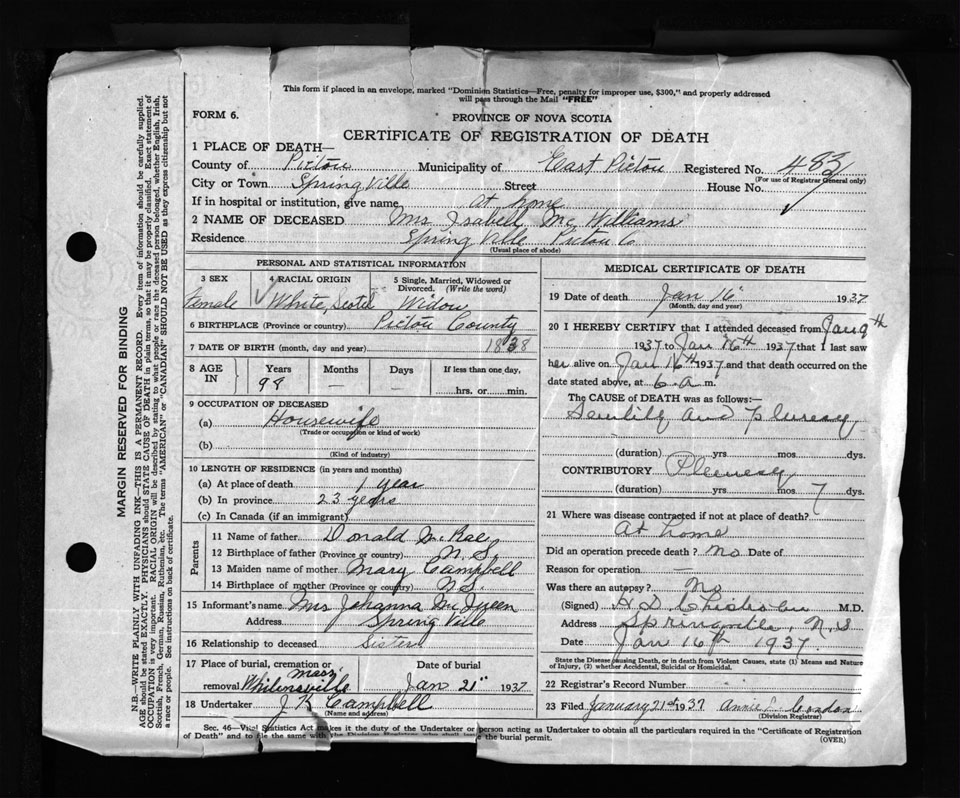 This form if placed in an envelope, marked "Dominion Statistics—Free, penalty for improper use, $300," and properly addressed
will pass through the Mail "FREE"
FORM 6.
PROVINCE OF NOVA SCOTIA
CERTIFICATE OF REGISTRATION OF DEATH
1 PLACE OF DEATH—
County of Pictou Municipality of East Pictou Registered No. 483
(For use of Registrar General only)
City or Town Spring Ville Street House No.
If in hospital or institution, give name at home
2 NAME OF DECEASED Mrs Isabell Mc Williams
Residence Spring Ville Pictou Co
(Usual place of abode)
PERSONAL AND STATISTICAL INFORMATION
3 SEX 4 RACIAL ORIGIN 5 Single, Married, Widowed or Divorced. (Write the word)
Female White, Scotch Widow
6 BIRTHPLACE (Province or country) Pictou County
7 DATE OF BIRTH (month, day and year) 1838
8 AGE IN Years Months Days If less than one day,
98 — — hrs. or min.
9 OCCUPATION OF DECEASED
(a) Housewife
(Trade or occupation or kind of work)
(b)
(Kind of industry)
10 LENGTH OF RESIDENCE (in years and months)
(a) At place of death 1 year
(b) In province 23 years
(c) In Canada (if an immigrant)
Parents
11 Name of father Donald McRae
12 Birthplace of father (Province or country) N.S.
13 Maiden name of mother Mary Campbell
14 Birthplace of mother (Province or country) N.S.
15 Informant's name Mrs Johanna McQueen
Address Spring Ville
16 Relationship to deceased Sister
17 Place of burial, cremation or removal Date of burial
Jan 21" 1937
18 Undertaker J K Campbell
(Name and address)
MEDICAL CERTIFICATE OF DEATH
19 Date of death Jan 16 1937
(Month, day and year)
20 I HEREBY CERTIFY that I attended deceased from Jan 9th
1937 to Jan 16th 1937 that I last saw
her alive on Jan 16th 1937 and that death occurred on the
date stated above, at 6 a m.
The CAUSE OF DEATH was as follows:—
Senility and Pleuresy
(duration) yrs mos dys.
CONTRIBUTORY Pleuresy
(duration) yrs mos 7 dys.
21 Where was disease contracted if not at place of death?
At home
Did an operation precede death? No Date of
Reason for operation —
Was there an autopsy? No
(Signed) H D Chisholm M.D.
Address Springville, N.S
Date Jan 16th 1937.
State the Disease causing Death, or in death from Violent Causes, state (1) Means and Nature
of Injury, (2) whether Accidental, Suicidal or Homicidal.
22 Registrar's Record Number
23 Filed January 21st 1937 Annie Condon
(Division Registrar)
Sec. 46—Vital Statistics Act makes it the duty of the Undertaker or person acting as Undertaker to obtain all the particulars required in the "Certificate of Registration
of Death" and to file the same with the Division Registrar who shall issue the burial permit.
(OVER)
MARGIN RESERVED FOR BINDING
N.B.—WRITE PLAINLY WITH UNFADING INK—THIS IS A PERMANENT RECORD. Every item of information should be carefully supplied.
AGE should be stated EXACTLY. PHYSICIANS should STATE CAUSE OF DEATH in plain terms, so that it may be properly classified. Exact statement of
OCCUPATION is very important. RACIAL ORIGIN will be described by stating to what people or race the deceased person belonged, whether English, Irish,
Scottish, French, German, Russian, Ruthenian, etc. The terms "AMERICAN" or "CANADIAN" SHOULD NOT BE USED as they express citizenship but not
a race or people. See instructions on back of certificate.